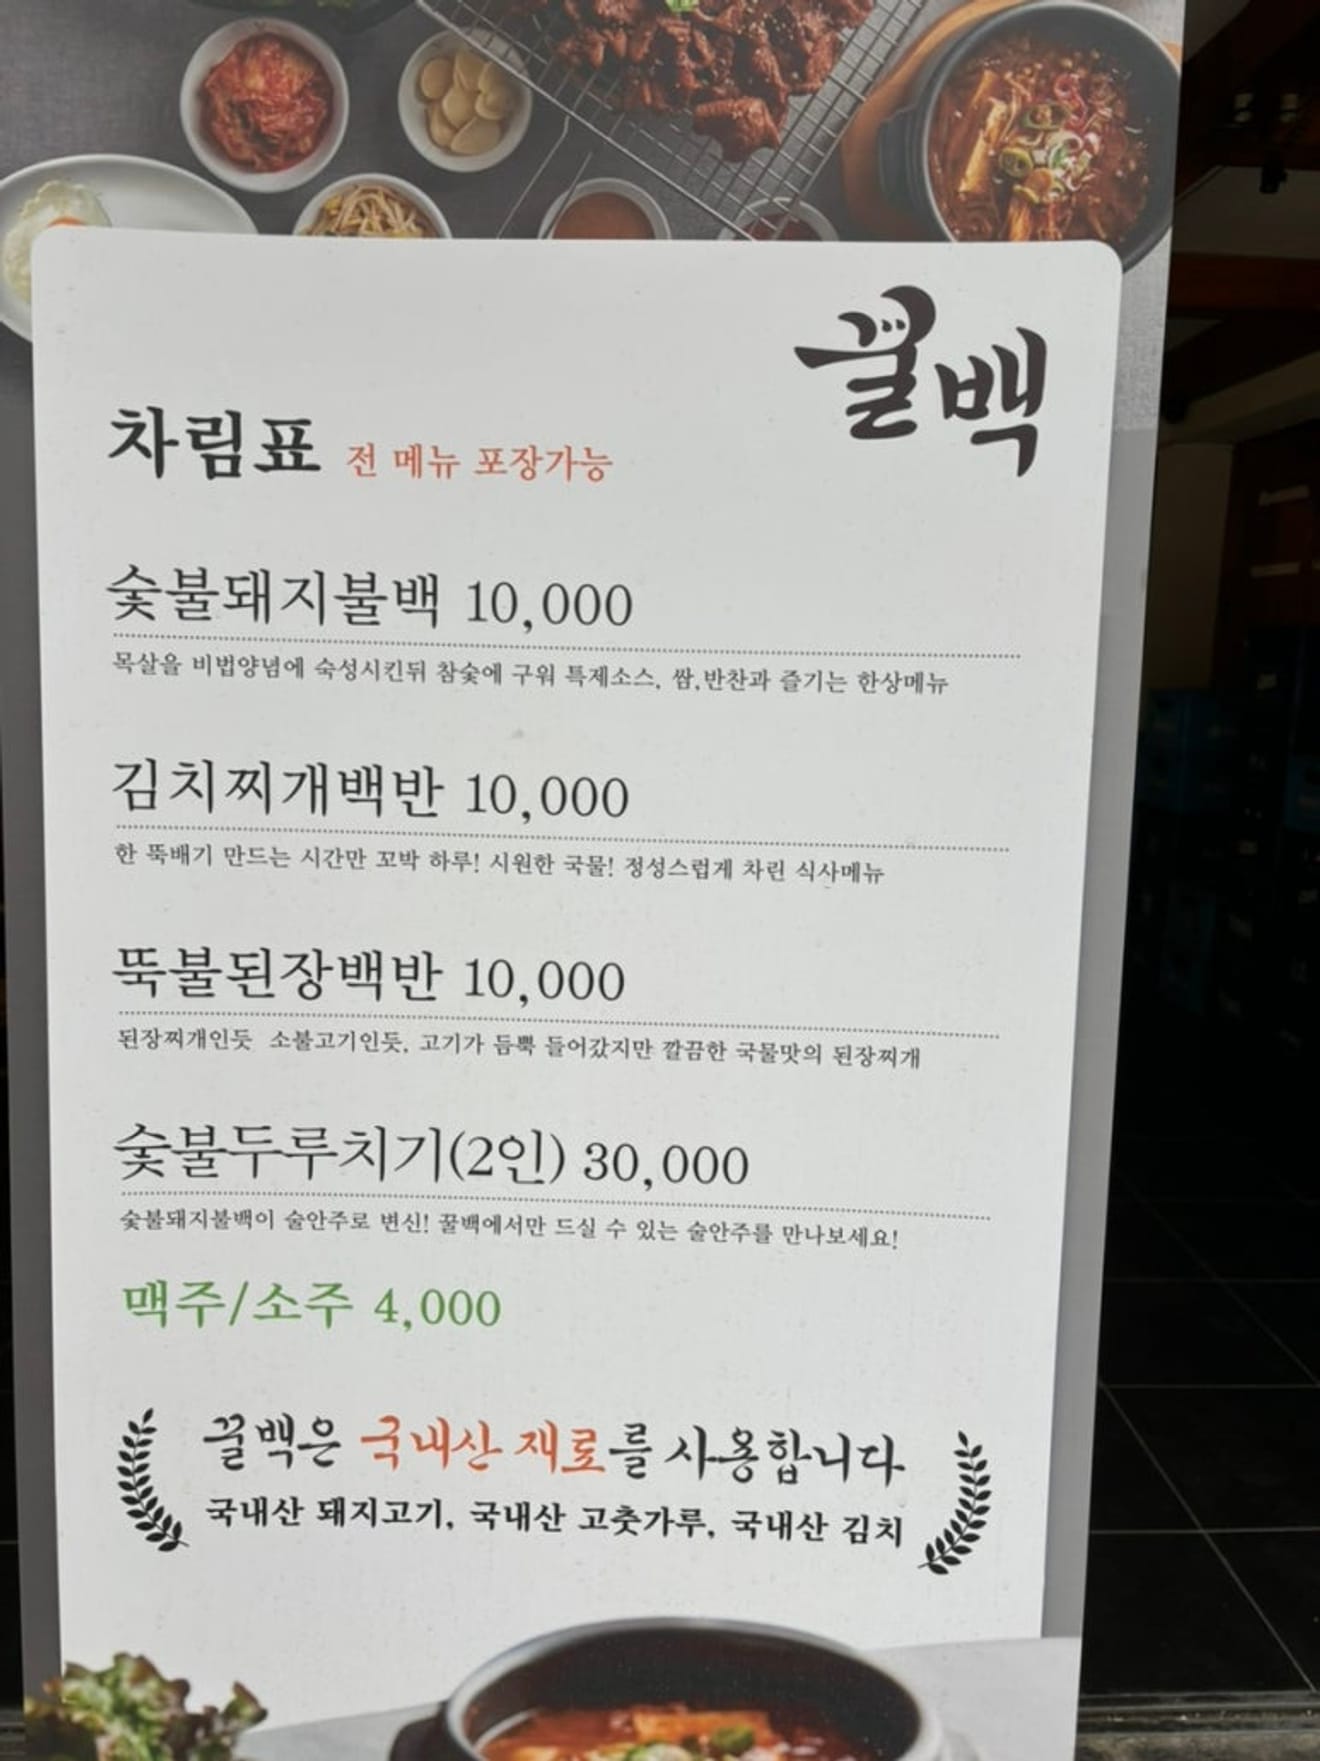 꿀백
차림표 전 메뉴 포장가능
숯불돼지불백 10,000
목살을 비법양념에 숙성시킨뒤 참숯에 구워 특제소스, 쌈,반찬과 즐기는 한상메뉴
김치찌개백반 10,000
한 뚝배기 만드는 시간만 꼬박 하루! 시원한 국물! 정성스럽게 차린 식사메뉴
뚝불된장백반 10,000
된장찌개인듯 소불고기인듯, 고기가 듬뿍 들어갔지만 깔끔한 국물맛의 된장찌개
숯불두루치기(2인) 30,000
숯불돼지불백이 술안주로 변신! 꿀백에서만 드실 수 있는 술안주를 만나보세요!
맥주/소주 4,000
꿀백은 국내산 재료를 사용합니다
국내산 돼지고기, 국내산 고춧가루, 국내산 김치